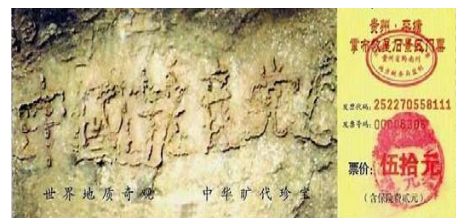 中國共產党
世界地质奇观 中华旷代珍宝
贵州·平塘
掌布救星石景区门票
贵州省黔南州
发票代码: 252270558111
发票号码: 00006306
票价: 伍拾元
(含保险费贰元)